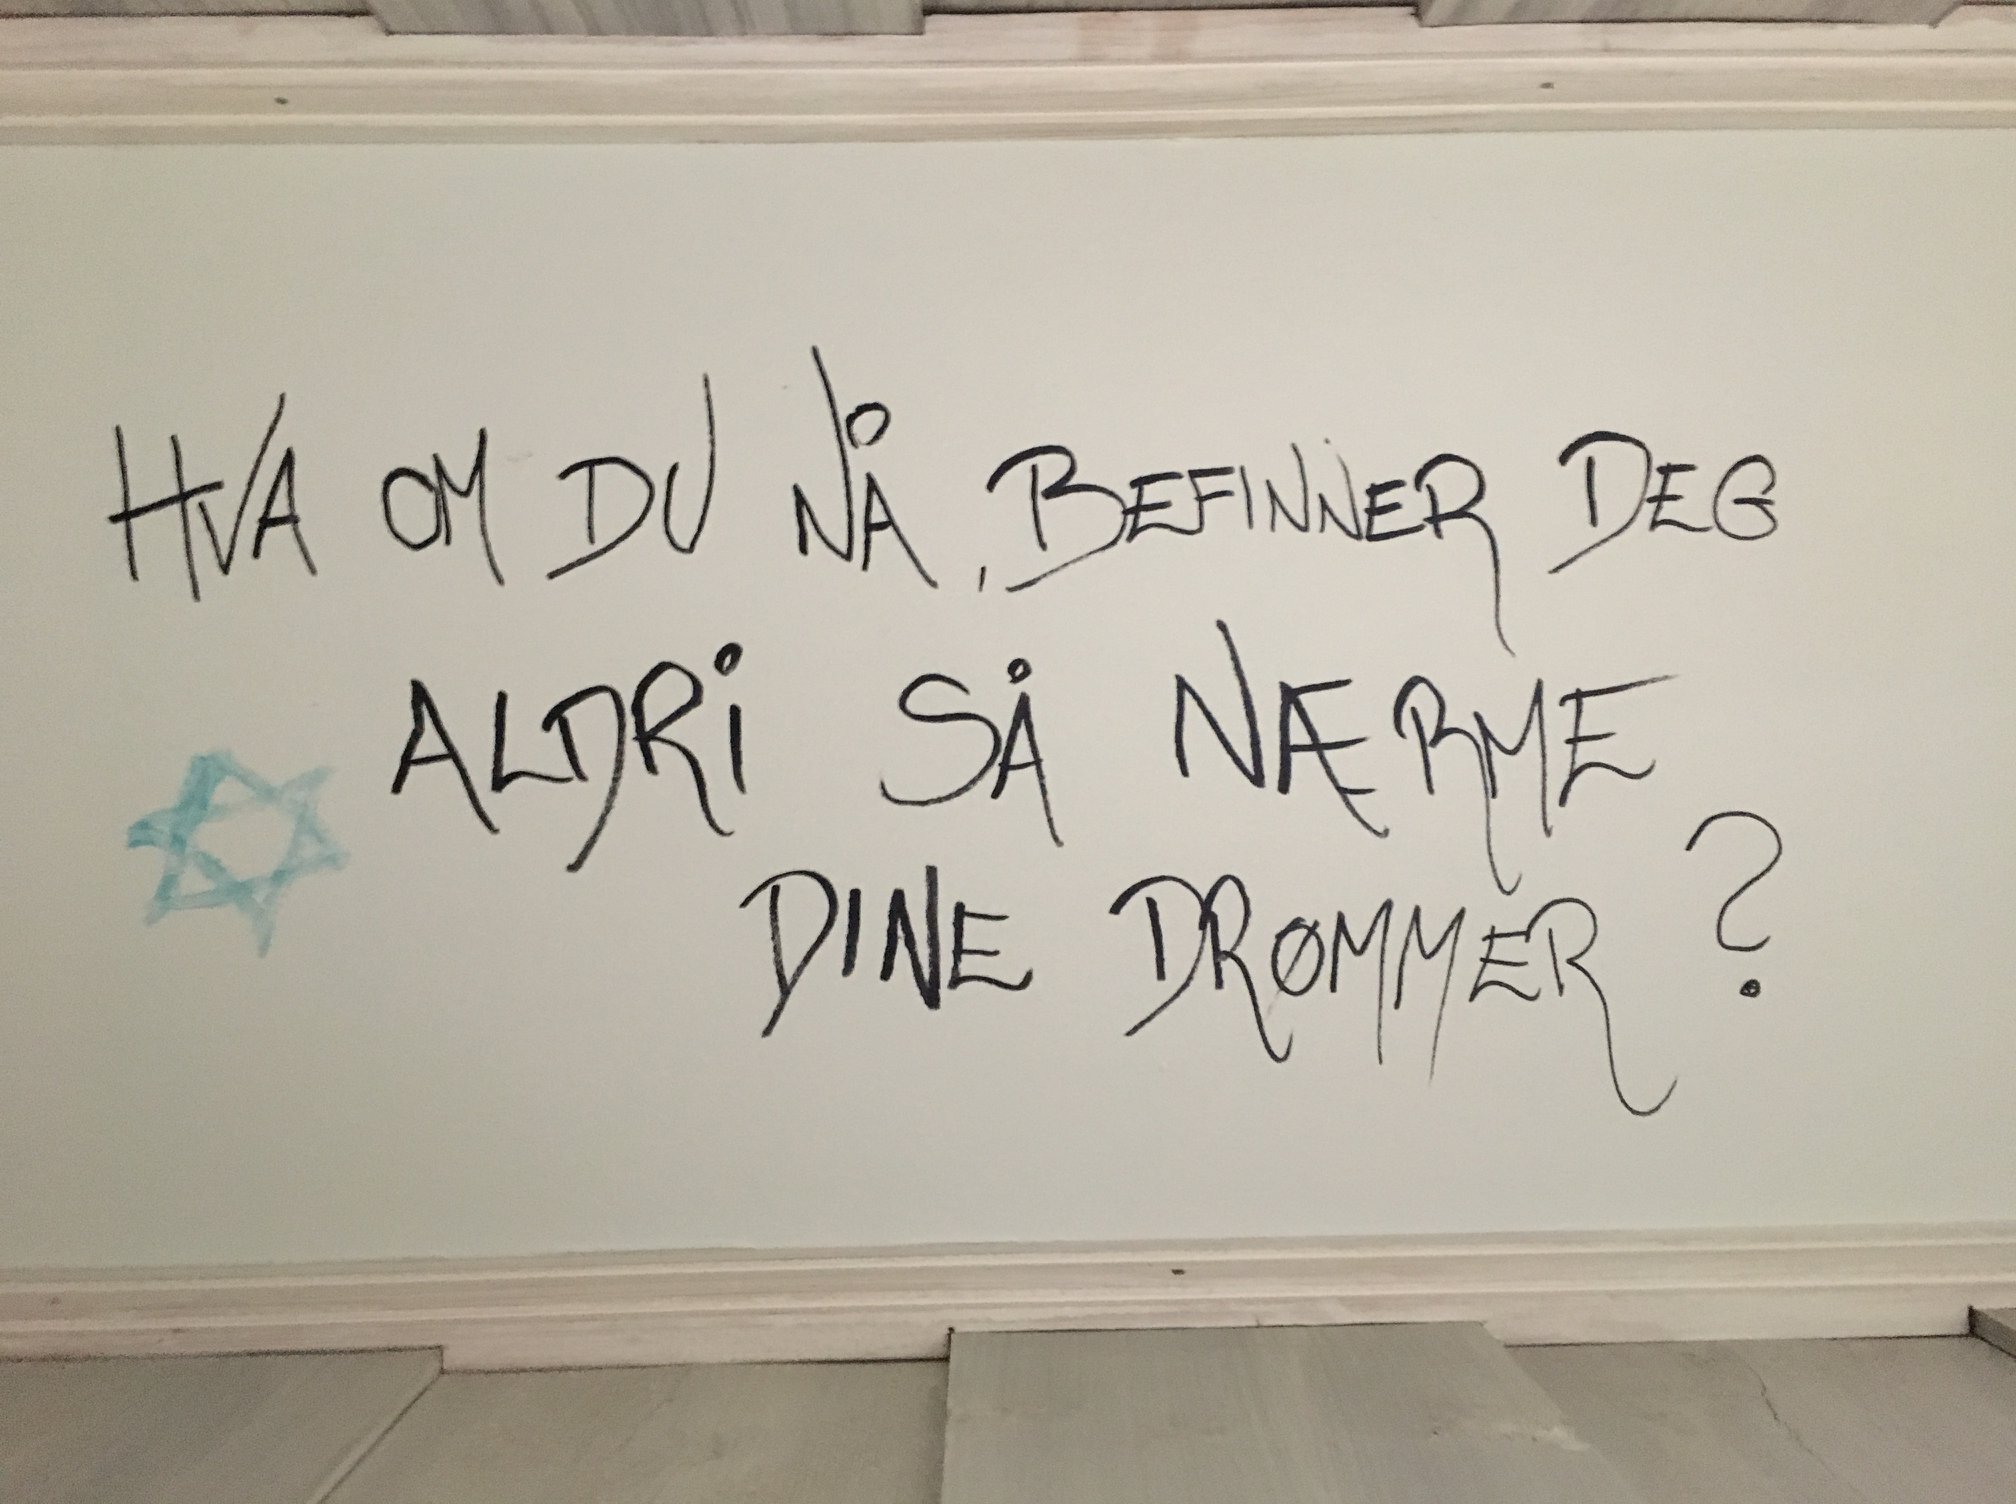 HVA OM DU NÅ, BEFINNER DEG
ALDRI SÅ NÆRME
DINE DRØMMER?